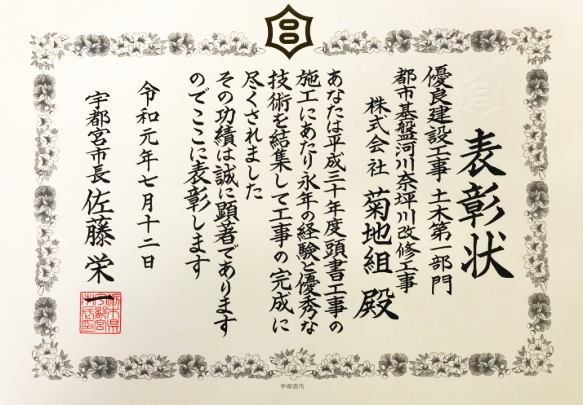 表彰状
優良建設工事 土木第一部門
都市基盤河川奈坪川改修工事
株式会社 菊地組 殿
あなたは平成三十年度頭書工事の
施工にあたり永年の経験と優秀な
技術を結集して工事の完成に
尽くされました
その功績は誠に顕著であります
のでここに表彰します
令和元年七月十二日
宇都宮市長 佐藤栄一
宇都宮市